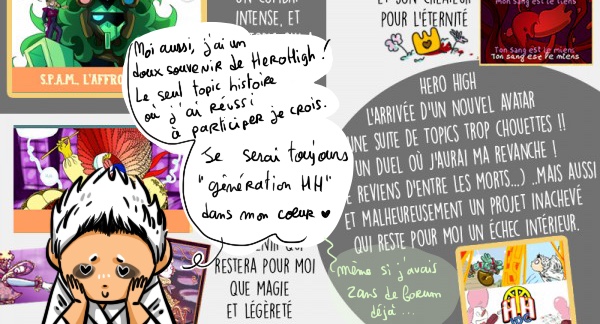 UN COMBAT
INTENSE, ET
S.P.A.M., L'AFFRO
ET SON CRÉATEUR
POUR L'ÉTERNITÉ
Mon sang est le tiens
Ton sang est le miens
Moi aussi, j'ai un
doux souvenir de HeroHigh!
Le seul topic histoire
où j'ai réussi
à participer je crois.
Je serai toujours
"génération HH"
dans mon cœur ♥
HERO HIGH
L'ARRIVÉE D'UN NOUVEL AVATAR
UNE SUITE DE TOPICS TROP CHOUETTES !!
UN DUEL OÙ J'AURAI MA REVANCHE !
E REVIENS D'ENTRE LES MORTS...) ..MAIS AUSSI
ET MALHEUREUSEMENT UN PROJET INACHEVÉ
QUI RESTE POUR MOI UN ÉCHEC INTÉRIEUR.
QUI
RESTERA POUR MOI
QUE MAGIE
ET LÉGÈRETÉ
même si j'avais
2ans de forum
déjà ...
HH